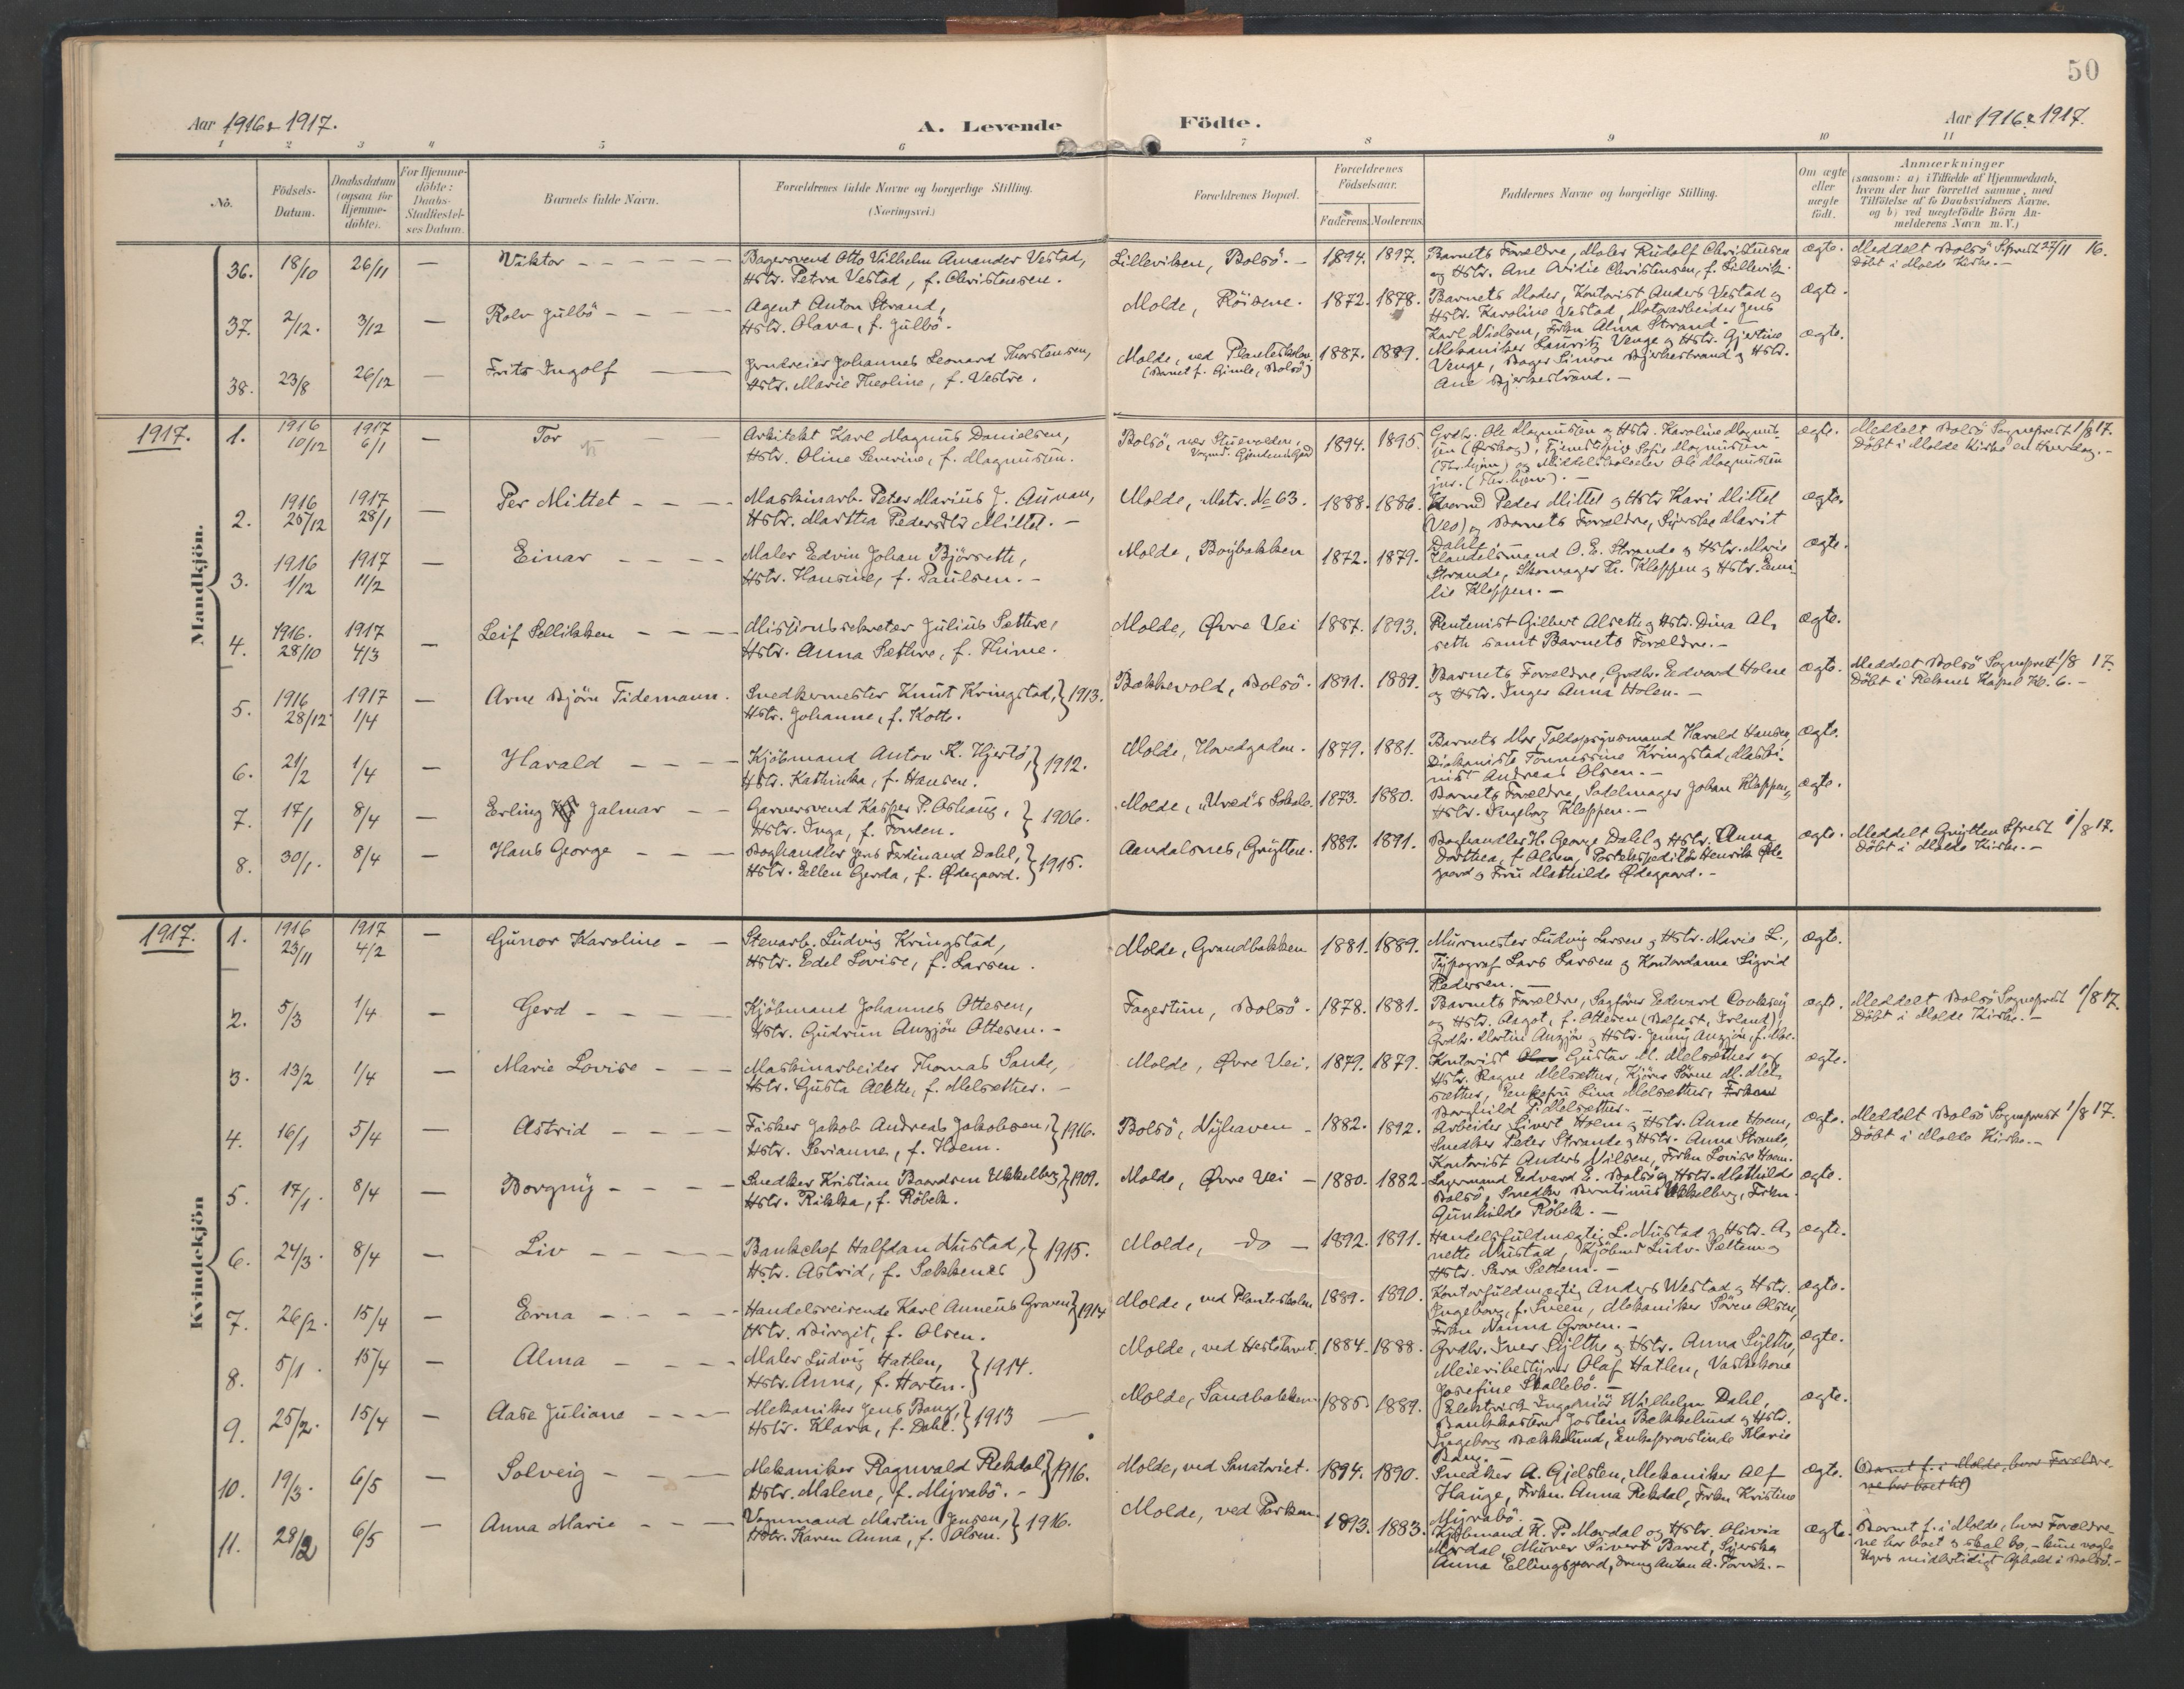 50
Aar 1916 & 1917.
A. Levende Födte.
Aar 1916 & 1917.
1 2 3 4 5 6 7 8 9 10 11
Nö.
Födsels-
Datum.
Daabsdatum
(ogsaa for
Hjemme-
döbte).
For Hjemme-
döbte:
Daabs-
Stadfæstel-
ses Datum.
Barnets fulde Navn.
Forældrenes fulde Navne og borgerlige Stilling.
(Næringsvei.)
Forældrenes Bopæl.
Forældrenes
Födselsaar.
Faderens. Moderens.
Faddernes Navne og borgerlige Stilling.
Om ægte
eller
uægte
födt.
Anmærkninger
(saasom: a) i Tilfælde af Hjemmedaab,
hvem der har forrettet samme, med
Tilföielse af to Daabsvidners Navne,
og b) ved uægtefödte Börn An-
melderens Navn m. V.)
Mandkjön.
36. 18/10 26/11 — Viktor
Bagersvend Otto Vilhelm Amandus Vestad,
Hstr. Petra Vestad, f. Christensen.
Lilleviken, Bolsö. 1894. 1897.
Barnets Forældre, Maler Rudolf Christensen
og Hstr. Ane Ovidie Christensen, f. Lillevik.
ægte.
Meddelt Bolsö Sprest 27/11 16.
Döbt i Molde Kirke.
37. 2/12. 3/12 — Rolv Gulbö
Agent Anton Strand,
Hstr. Olava, f. Gulbö.
Molde, Röisene. 1872. 1878.
Barnets Moder, Kontorist Anders Vestad og
Hstr. Karoline Vestad, Motorarbeider Jens
Karl Nielsen, Frkn Alma Strand.
ægte.
38. 23/8 26/12 — Frits Ingolf
Johannes Leonard Thorstensen,
Hstr. Marie Theoline, f. Vestre.
Molde, ved Planteskolen.
(Barnet f. Gimle, Bolsö)
1887. 1889.
Mekaniker Lauritz Venge og Hstr. Gjertine
Venge, Bager Simon Bjerkestrand og Hstr.
Ane Bjerkestrand.
ægte.
1917.
1. 1916 10/12 1917 6/1 — Tor
Arkitekt Karl Magnus Danielsen,
Hstr. Oline Severine, f. Magnussen.
Bolsö, nær Stuevolden,
1894. 1895.
Grdbr. Ole Magnussen og Hstr. Karoline Magnus-
sen (Örskog), Tjenestpige Sofie Magnussen
og Middelskoleelev Ole Magnussen
jnr.
ægte.
Meddelt Bolsö Sogneprest 1/8 17.
Döbt i Molde Kirke en Hverdag.
2. 1916 25/12 1917 28/1 — Per Mittet
Maskinarb. Peter Marius J. Aunan,
Hstr. Martha Pedersdtr Mittet.
Molde, Matr. No 63. 1888. 1886.
Peder Mittet og Hstr Kari Mittet
(Veö) og Barnets Forældre, Syerske Marit
Dahle.
ægte.
3. 1916 1/12 1917 11/2 — Einar
Maler Edvin Johan Björsette,
Hstr. Hansine, f. Paulsen.
Molde, Boybakken 1872. 1879.
Handelsmand O. E. Strande og Hstr. Marie
Strande, Skomager Kr. Kleppen og Hstr. Emi-
lie Kleppen.
ægte.
4. 1916. 28/10 1917 4/3 — Leif Sellikken
Missionssekretær Julius Sethre,
Hstr. Anna Sæthre, f. Thime.
Molde, Øvre Vei 1887. 1893.
Rentenist Gilbert Alsethe og Hstr. Dina Al-
seth samt Barnets Forældre.
ægte.
5. 1916 28/12 1917 1/4 — Arne Björn Tidemann.
Snedkermester Knut Kringstad, } 1913.
Hstr. Johanne, f. Kotte.
Bækkevold, Bolsö. 1891. 1889.
Barnets Forældre, Grdbr. Edvard Holen
og Hstr. Inger Anna Holen.
ægte.
Meddelt Bolsö Sogneprest 1/8 17.
Döbt i Reknes Kapel Kl. 6.
6. 21/2 1/4 — Harald
Kjöbmand Anton K. Hjertö, } 1912.
Hstr. Kathinka, f. Hansen.
Molde, Hovedgaden. 1879. 1881.
Barnets Mor, Toldopsynsmand Harald Hansen,
Diakonisse Tonnessine Kringstad, Maski-
nist Andreas Olsen.
ægte.
7. 17/1 8/4 — Erling Hj Jalmar
Garversvend Kasper P. Oshaug, } 1906.
Hstr. Inga, f. Tonden.
Molde, "Ured"s Lokale. 1873. 1880.
Barnets Forældre, Sadelmager Johan Kleppen,
Hstr. Ingeborg Kleppen.
ægte.
8. 30/1. 8/4 — Hans George
Boghandler Jens Ferdinand Dahl, } 1915.
Hstr. Ellen Gerda, f. Ødegaard.
Aandalsnes, Grytten. 1889. 1891.
Boghandler H. George Dahl og Hstr. Anna
Dorthea, f. Olsen, Postekspeditör Henrik Øde-
gaard og Fru Mathilde Ødegaard.
ægte.
Meddelt Grytten Sprest 1/8 17.
Döbt i Molde Kirke.
Kvindekjön
1917.
1. 1916 23/11 1917 4/2 — Gunor Karoline
Stenarb. Ludvig Kringstad,
Hstr. Edel Lovise, f. Larsen.
Molde, Grandbakken 1881. 1889.
Murmester Ludvig Larsen og Hstr. Marie L.,
Typograf Lars Larsen og Kontordame Sigrid
Pedersen.
ægte.
2. 5/3 1/4 — Gerd
Kjöbmand Johannes Ottesen,
Hstr. Gudrun Angjön Ottesen.
Fagertun, Bolsö. 1878. 1881.
Barnets Forældre, Sagförer Eedward
og Hstr. Aagot, f. Ottesen (Belfast, Irland),
Grdbr. Martin Angjön og Hstr. Jenny Angjön, f. Moe.
ægte.
Meddelt Bolsö Sogneprest 1/8 17.
Döbt i Molde Kirke.
3. 13/2 1/4 — Marie Lovise
Maskinarbeider Thomas Sande,
Hstr. Gusta Alette, f. Melsæther.
Molde, Øvre Vei. 1879. 1879.
Kontorist Gustav M. Melsæther og
Hstr. Ragna Melsæther, Kjörer Sören M. Mel-
sæther, Enkefru Lina Melsæther, Frken
Borghild P. Melsæther.
ægte.
4. 16/1 5/4 — Astrid
Fisker Jakob Andreas Jakobsen, } 1916.
Hstr. Serianne, f. Hoem.
Bolsö, Nyhaven 1882. 1892.
Arbeider Sivert Hoem og Hstr. Anne Hoem,
Snedker Peter Strande og Hstr. Anna Strande,
Kontorist Anders Nilsen, Frkn Lovise Hoem.
ægte.
Meddelt Bolsö Sogneprest 1/8 17.
Döbt i Molde Kirke.
5. 17/1. 8/4 — Borgny
Snedker Kristian Baardsen Ukkelberg, } 1909.
Hstr. Rikka, f. Röbek.
Molde, Øvre Vei 1880. 1882.
Lagermand Edvard E. Bolsö og Hstr. Mathilde
Bolsö, Snedker Berntinus Ukkelberg, Frkn.
Gunhilde Röbek.
ægte.
6. 24/3. 8/4 — Liv
Bankchef Halfdan Mustad, } 1915.
Hstr. Astrid, f. Sekkenes
Molde, do 1892. 1891.
Handelsfuldmægtig L. Mustad og Hstr. A-
nette Mustad, Kjöbmd Ludv. Sættem og
Hstr. Sara Sættem.
ægte.
7. 26/2. 15/4 — Erna
Handelsreisende Karl Anneus Graven, } 1914
Hstr. Birgit, f. Olsen.
Molde, ved Planteskolen 1889. 1890.
Kontorfuldmægtig Anders Westad og Hstr.
Ingeborg, f. Sveen, Mekaniker Sören Olsen,
Frkn Nanna Graven.
ægte.
8. 5/1. 15/4 — Alma
Maler Ludvig Hatlen, } 1914.
Hstr. Anna, f. Horten.
Molde, ved Hestetorvet. 1884. 1888.
Grdbr. Iver Sylthe og Hstr. Anna Sylthe,
Meieribestyrer Olaf Hatlen, Vaskekone
Josefine Skallebö.
ægte.
9. 25/2. 15/4 — Aase Juliane
Mekaniker Jens Bang, } 1913
Hstr. Klara, f. Dahl.
Molde, Sandbakken. 1885. 1889.
Elektrisk Ingeniör Wilhelm Dahl,
Bankkasserer Jostein Bækkelund og Hstr.
Ingeborg Bækkelund, Enkeprovstinde Marie
Bang.
ægte.
10. 19/3. 6/5 — Solveig
Mekaniker Ragnvald Rekdal, } 1916.
Hstr. Malene, f. Myrabö.
Molde, ved Sanatoriet. 1894. 1890.
Snedker A. Gjelsten, Mekaniker Alf
Hauge, Frkn. Anna Rekdal, Frkn Kristine
Myrabö.
ægte.
(Barnet f. i Molde, hvor Forældre-
ne har boet til)
11. 28/2 6/5 — Anna Marie
Vognmand Martin Jensen, } 1916.
Hstr. Karen Anna, f. Olsen.
Molde, ved Parken. 1893. 1883.
Kjöbmand K. P. Mordal og Hstr. Olivia
Mordal, Murer Sivert Baret, Syerske
Anna Ellingsgaard, Dreng Anton A. Torvik.
ægte.
Barnet f. i Molde, hvor Forældre-
ne har boet og skal bo, - kun nogle
Ugers midlertidigt Ophold i Bolsö.